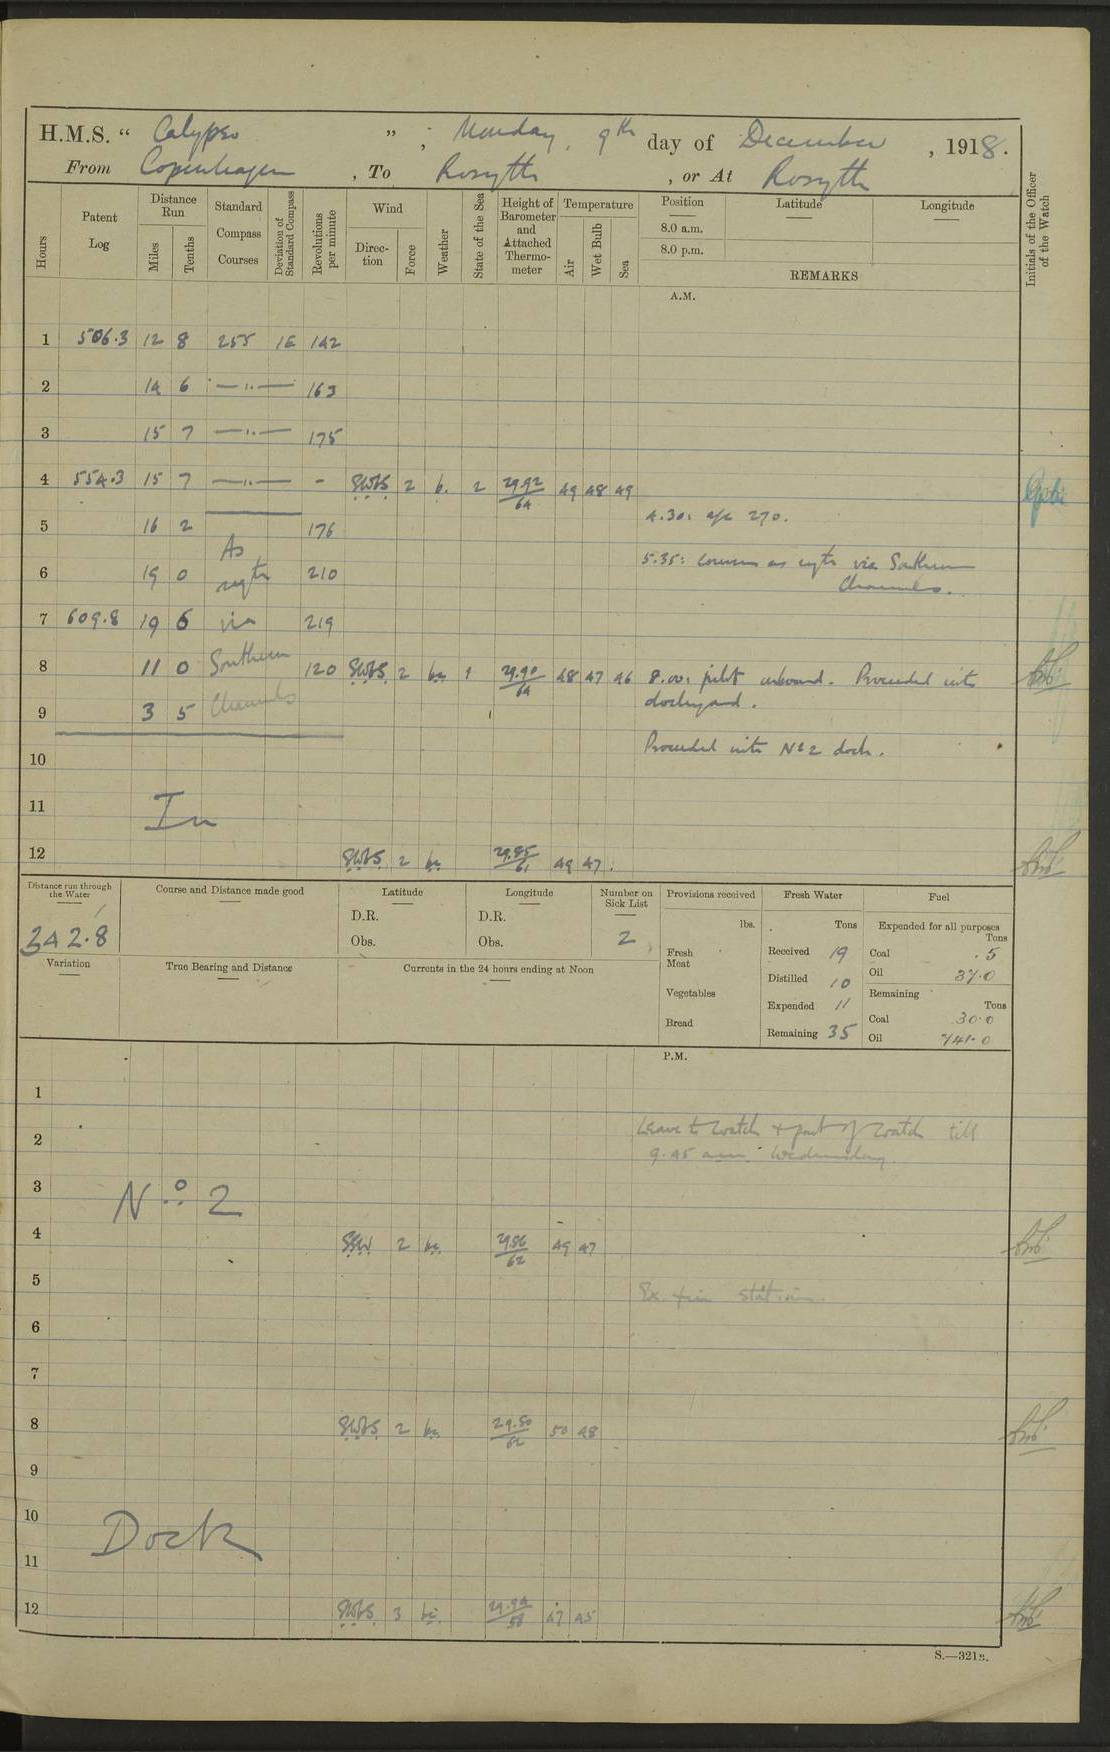 H.M.S. “ Calypso ” , Monday, 9th day of December , 1918.
From Copenhagen , To Rosyth , or At Rosyth
Hours Patent Log Distance Run Miles Tenths Standard Compass Courses Deviation of Standard Compass Revolutions per minute Wind Direction Force Weather State of the Sea Height of Barometer and Attached Thermometer Temperature Air Wet Bulb Sea Position Latitude Longitude Initials of the Officer of the Watch
8.0 a.m.
8.0 p.m.
REMARKS
A.M.
1 506.3 12 8 255 1E 142
2 14 6 —"— 163
3 15 7 —"— 175
4 554.3 15 7 —"— - SWbS 2 b. 2 29.92/64 49 48 49
4.30: a/c 270.
5 16 2 As 176
5.35: Courses as reqte via Southern
Channels.
6 19 0 reqte 210
7 609.8 19 6 via 219
8 11 0 Southern 120 SWbS 2 bc 1 29.90/64 48 47 46 8.00: pilot onboard. Proceeded into
dockyard.
9 3 5 Channels
Proceeded into No 2 dock.
10
11 In
12 SWbS 2 bc 29.85/61 49 47.
Distance run through the Water 242.8
Course and Distance made good
Latitude D.R. Obs.
Longitude D.R. Obs.
Number on Sick List 2
Provisions received lbs.
Fresh Meat
Vegetables
Bread
Fresh Water Tons
Received 19
Distilled 10
Expended 11
Remaining 35
Fuel
Expended for all purposes Tons
Coal .5
Oil 37.0
Remaining Tons
Coal 30.0
Oil 741.0
Variation
True Bearing and Distance
Currents in the 24 hours ending at Noon
P.M.
1
Leave to watch & part of watch till
2
9.45 am Wednesday
3 No 2
4 SSW 2 bc 29.86/62 49 47
5
6
7
8 SWbS 2 bc 29.80/62 50 48
9
10 Dock
11
12 SWbS 3 bc 29.94/58 47 45
S.—321B.